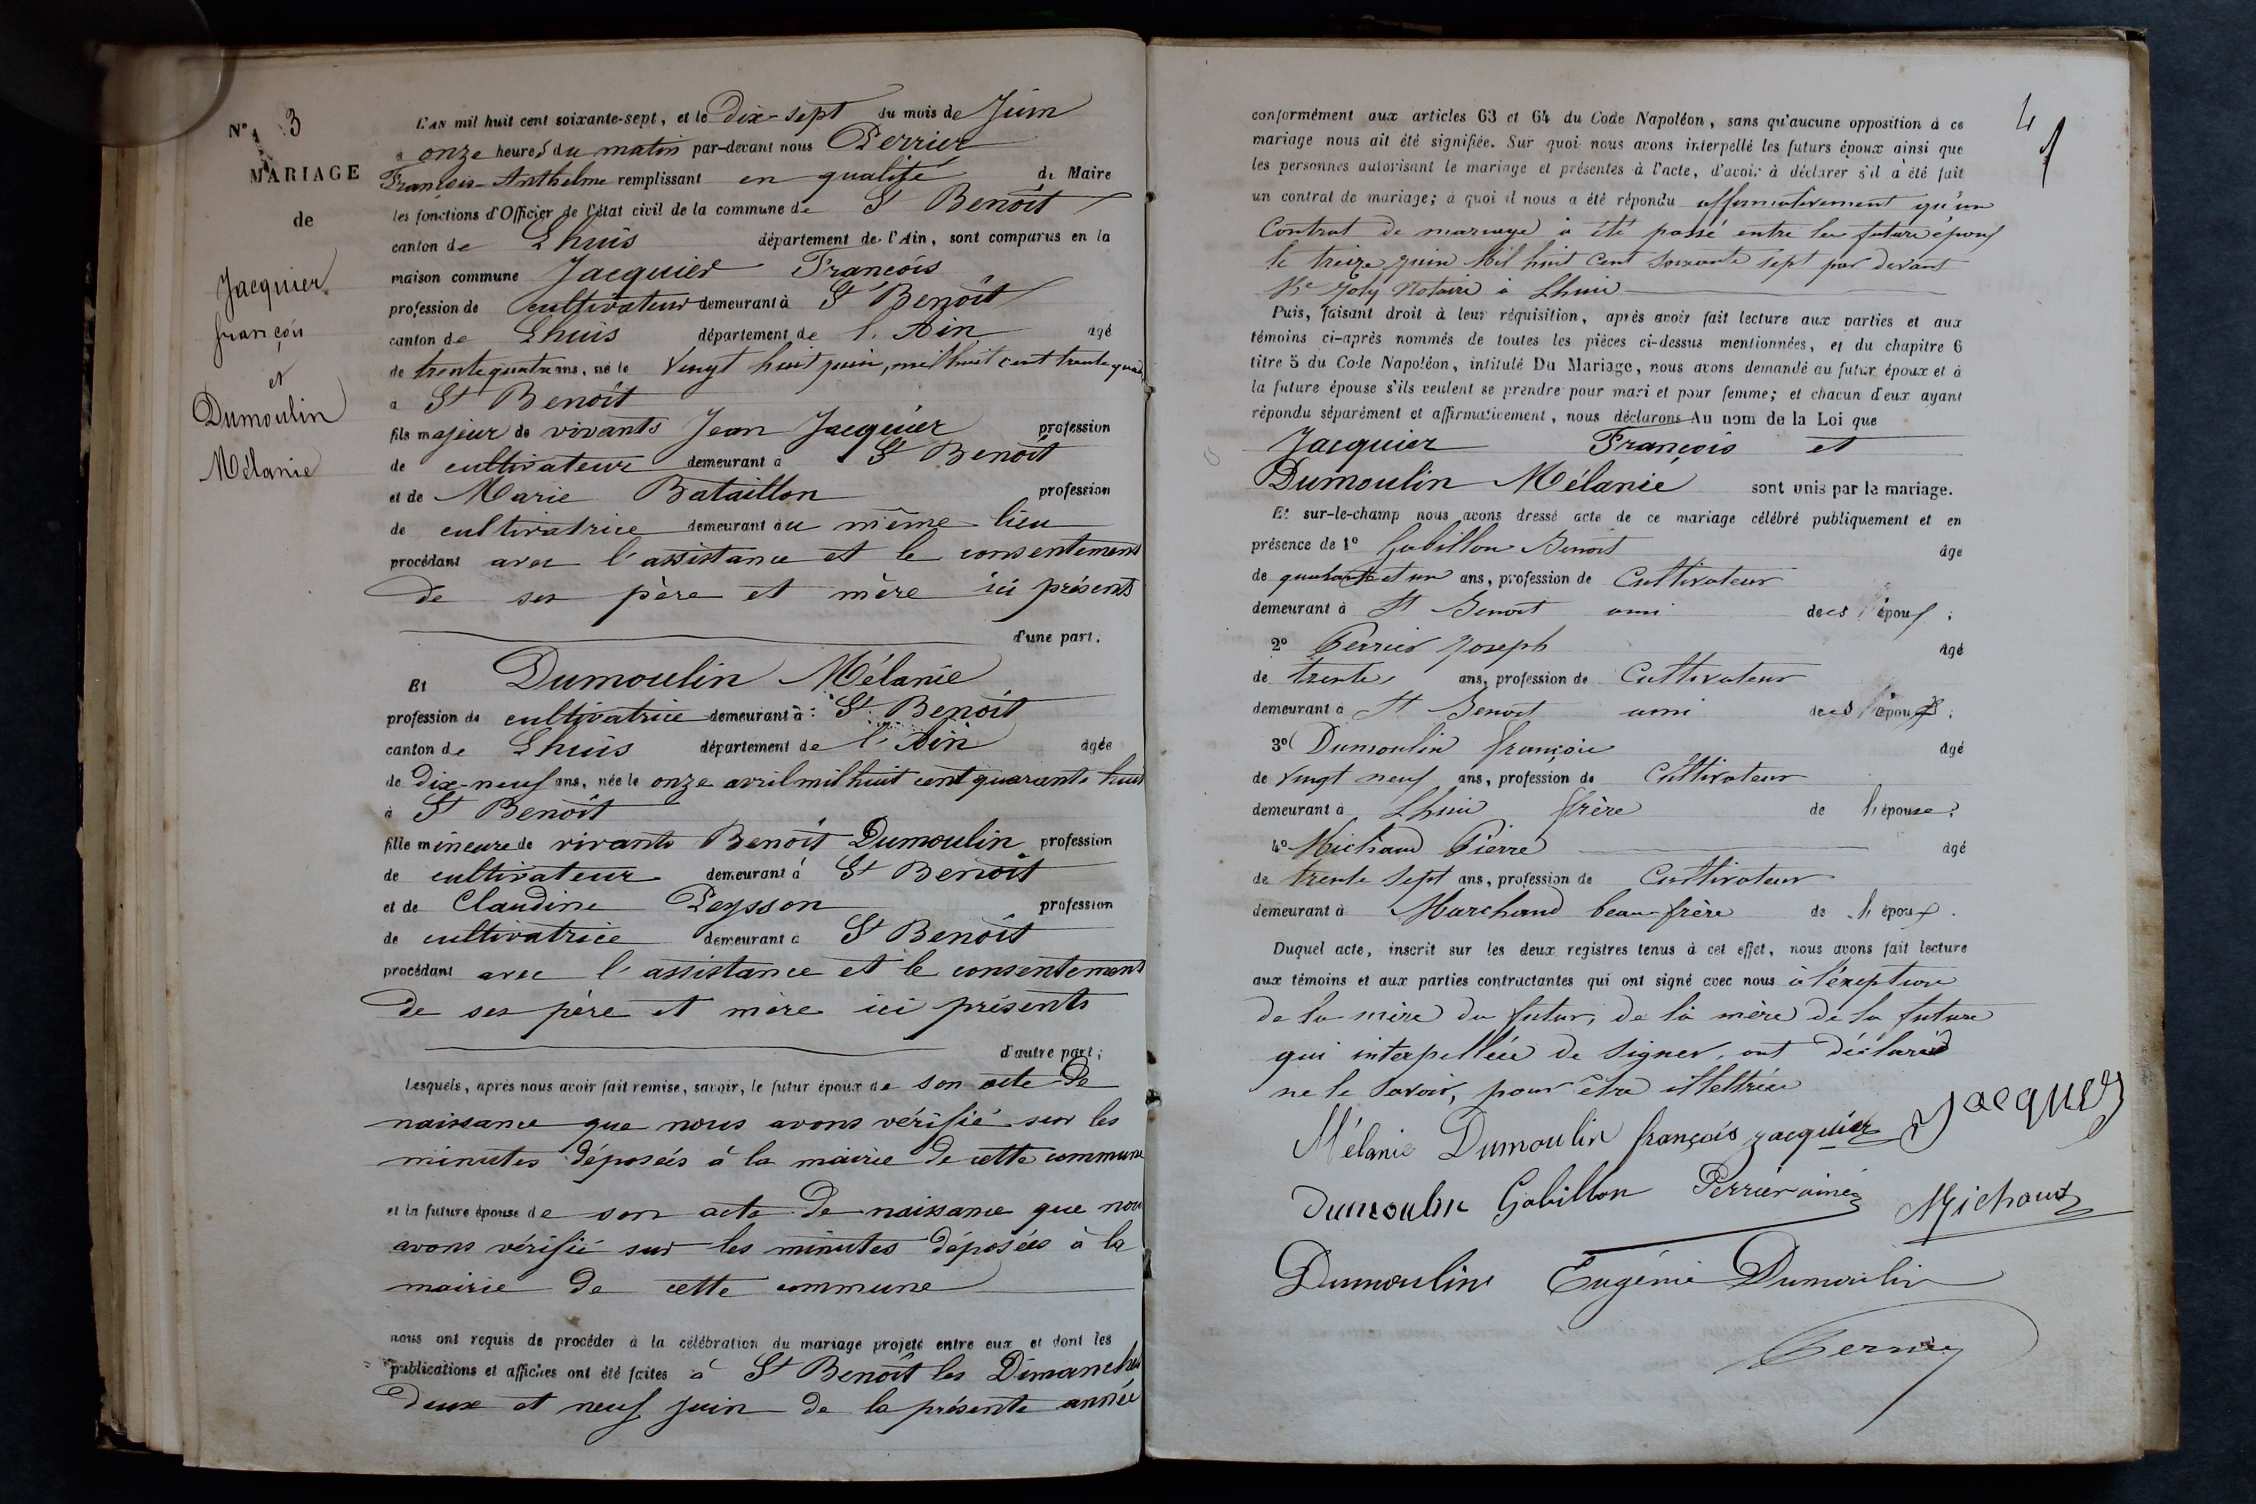 N° 3
MARIAGE
de
Jacquier
françois
et
Dumoulin
Mélanie
L'AN mil huit cent soixante-sept, et le Dix-sept du mois de Juin
à onze heures du matin par-devant nous Perrier
François-Anthelme remplissant en qualité de Maire
les fonctions d'Officier de l'état civil de la commune de St Benoît
canton de Lhuis département de l'Ain, sont comparus en la
maison commune Jacquier François
profession de cultivateur demeurant à St Benoît
canton de Lhuis département de l'Ain âgé
de trente quatre ans, né le Vingt huit juin, mil huit cent trente quatre
à St Benoît
fils majeur de vivants Jean Jacquier profession
de cultivateur demeurant à St Benoît
et de Marie Bataillon profession
de cultivatrice demeurant au même lieu
procédant avec l'assistance et le consentement
de ses père et mère ici présents
d'une part.
Et Dumoulin Mélanie
profession de cultivatrice demeurant à St Benoît
canton de Lhuis département de l'Ain âgée
de Dix-neuf ans, née le onze avril mil huit cent quarante huit
à St Benoît
fille mineure de vivants Benoît Dumoulin profession
de cultivateur demeurant à St Benoît
et de Claudine Peysson profession
de cultivatrice demeurant à St Benoît
procédant avec l'assistance et le consentement
de ses père et mère ici présents
d'autre part;
Lesquels, après nous avoir fait remise, savoir, le futur époux de son acte de
naissance que nous avons vérifié sur les
minutes déposées à la mairie de cette commune
et la future épouse de son acte de naissance que nous
avons vérifié sur les minutes déposées à la
mairie de cette commune
nous ont requis de procéder à la célébration du mariage projeté entre eux et dont les
publications et affiches ont été faites à St Benoît les Dimanches
deux et neuf juin de la présente année
4
conformément aux articles 63 et 64 du Code Napoléon, sans qu'aucune opposition à ce
mariage nous ait été signifiée. Sur quoi nous avons interpellé les futurs époux ainsi que
les personnes autorisant le mariage et présentes à l'acte, d'avoir à déclarer s'il a été fait
un contrat de mariage; à quoi il nous a été répondu affirmativement qu'un
Contrat de mariage a été passé entre les futurs époux
le treize juin Mil huit Cent soixante sept par devant
Me Joly Notaire à Lhuis
Puis, faisant droit à leur réquisition, après avoir fait lecture aux parties et aux
témoins ci-après nommés de toutes les pièces ci-dessus mentionnées, et du chapitre 6
titre 5 du Code Napoléon, intitulé Du Mariage, nous avons demandé au futur époux et à
la future épouse s'ils veulent se prendre pour mari et pour femme; et chacun d'eux ayant
répondu séparément et affirmativement, nous déclarons Au nom de la Loi que
Jacquier François et
Dumoulin Mélanie sont unis par le mariage.
Et sur-le-champ nous avons dressé acte de ce mariage célébré publiquement et en
présence de 1° Gobillon Benoit âge
de quarante et un ans, profession de Cultivateur
demeurant à St Benoit ami des époux;
2° Perrier Joseph âgé
de trente ans, profession de Cultivateur
demeurant à St Benoit ami des époux;
3° Dumoulin françois âgé
de Vingt neuf ans, profession de Cultivateur
demeurant à Lhuis frère de l'épouse;
4° Michaud Pierre âgé
de trente Sept ans, profession de Cultivateur
demeurant à Marchand beau-frère de l'époux.
Duquel acte, inscrit sur les deux registres tenus à cet effet, nous avons fait lecture
aux témoins et aux parties contractantes qui ont signé avec nous à l'exeption
de la mère du futur, de la mère de la future
qui interpellées de Signer, ont déclaré
ne le Savoir, pour être illettrées
Mélanie Dumoulin françois jacquier Jacquier
Dumoulin Gobillon Perrier ainé Michaud
Dumoulin Eugénie Dumoulin
Perrier